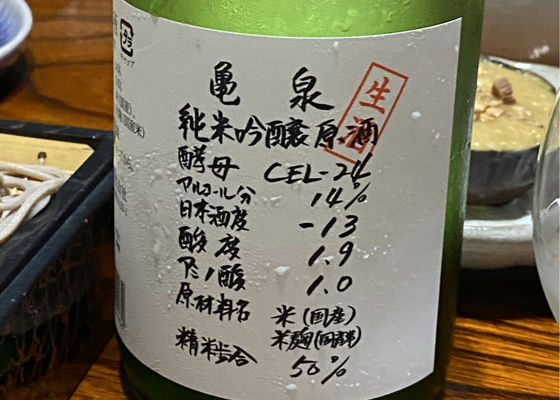 亀泉
生酒
純米吟醸原酒
酵母 CEL-24
アルコール分 14%
日本酒度 -13
酸度 1.9
アミノ酸 1.0
原材料名 米(国産)
米麹(国産米)
精米歩合 50%
プラ
キャップ